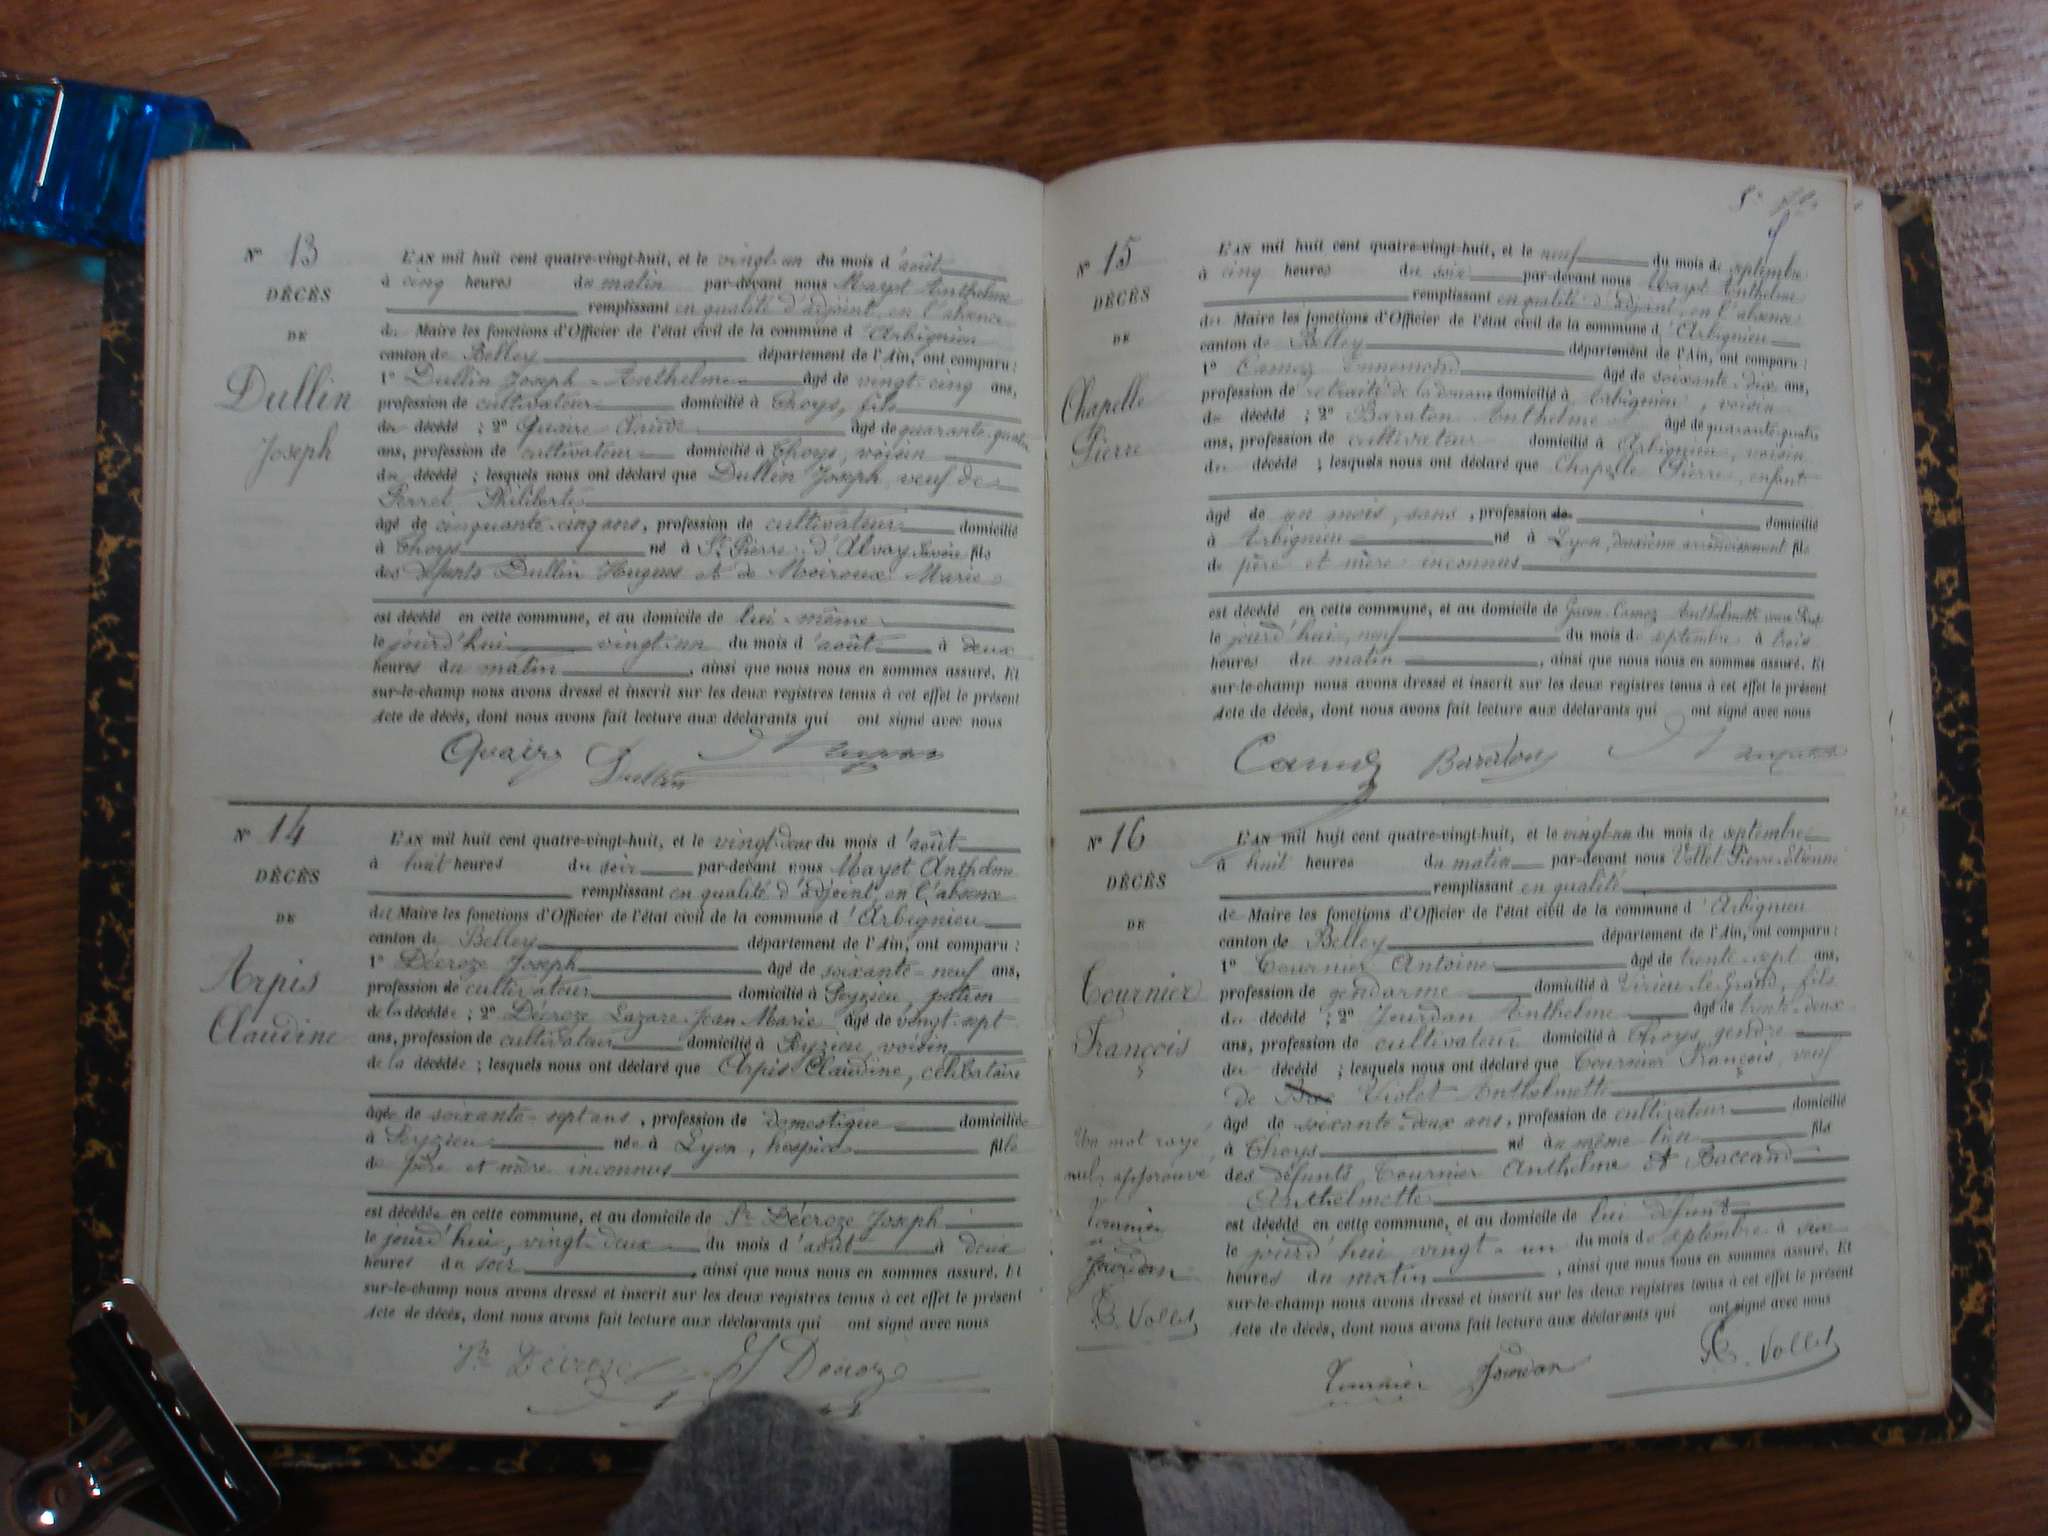 N° 13
DÉCÈS
DE
Dullin
Joseph
L'AN mil huit cent quatre-vingt-huit, et le vingt-un du mois d'août
à cinq heures du matin par-devant nous Mayot Anthelme
remplissant en qualité d'adjoint, en l'absence
du Maire les fonctions d'Officier de l'état civil de la commune d'Arbignieu
canton de Belley département de l'Ain, ont comparu :
1° Dullin Joseph-Anthelme âgé de vingt-cinq ans,
profession de cultivateur domicilié à Thoys, fils
du décédé ; 2° Quaire Claude âgé de quarante-quatre
ans, profession de cultivateur domicilié à Thoys, voisin
du décédé ; lesquels nous ont déclaré que Dullin Joseph, veuf de
Perret Philiberte
âgé de cinquante-cinq ans, profession de cultivateur domicilié
à Thoys né à St Pierre-d'Alvey Savoie fils
des défunts Dullin Hugues et de Moiroux Marie
est décédé en cette commune, et au domicile de lui-même
le jourd'hui vingt-un du mois d'août à deux
heures du matin, ainsi que nous nous en sommes assuré. Et
sur-le-champ nous avons dressé et inscrit sur les deux registres tenus à cet effet le présent
Acte de décès, dont nous avons fait lecture aux déclarants qui ont signé avec nous
Quaire Dullin
N° 14
DÉCÈS
DE
Arpis
Claudine
L'AN mil huit cent quatre-vingt-huit, et le vingt-deux du mois d'août
à huit heures du soir par-devant nous Mayot Anthelme
remplissant en qualité d'adjoint, en l'absence
du Maire les fonctions d'Officier de l'état civil de la commune d'Arbignieu
canton de Belley département de l'Ain, ont comparu :
1° Décroze Joseph âgé de soixante-neuf ans,
profession de cultivateur domicilié à Peyzieu, patron
de la décédée ; 2° Décroze Lazare-Jean-Marie âgé de vingt-sept
ans, profession de cultivateur domicilié à Peyzieu, voisin
de la décédée ; lesquels nous ont déclaré que Arpis Claudine, célibataire
âgée de soixante-sept ans, profession de domestique domiciliée
à Peyzieu née à Lyon, hospice fille
de père et mère inconnus
est décédée en cette commune, et au domicile de Sr Décroze Joseph
le jourd'hui, vingt-deux du mois d'août à deux
heures du soir, ainsi que nous nous en sommes assuré. Et
sur-le-champ nous avons dressé et inscrit sur les deux registres tenus à cet effet le présent
Acte de décès, dont nous avons fait lecture aux déclarants qui ont signé avec nous
Jh Décroze Décroze
N° 15
DÉCÈS
DE
Chapelle
Pierre
L'AN mil huit cent quatre-vingt-huit, et le neuf du mois de septembre
à cinq heures du soir par-devant nous Mayot Anthelme
remplissant en qualité d'adjoint, en l'absence
du Maire les fonctions d'Officier de l'état civil de la commune d'Arbignieu
canton de Belley département de l'Ain, ont comparu :
1° Camoz Ennemond âgé de soixante-dix ans,
profession de retraité de la douane domicilié à Arbignieu, voisin
du décédé ; 2° Baraton Anthelme âgé de quarante-quatre
ans, profession de cultivateur domicilié à Arbignieu, voisin
du décédé ; lesquels nous ont déclaré que Chapelle Pierre, enfant
âgé de un mois, sans, profession de domicilié
à Arbignieu né à Lyon, deuxième arrondissement fils
de père et mère inconnus
est décédé en cette commune, et au domicile de Camoz Anthelmette
le jourd'hui, neuf du mois de septembre à trois
heures du matin, ainsi que nous nous en sommes assuré. Et
sur-le-champ nous avons dressé et inscrit sur les deux registres tenus à cet effet le présent
Acte de décès, dont nous avons fait lecture aux déclarants qui ont signé avec nous
Camoz Baraton
N° 16
DÉCÈS
DE
Tournier
François
L'AN mil huit cent quatre-vingt-huit, et le vingt-un du mois de septembre
à huit heures du matin par-devant nous Vollet Pierre-Etienne
remplissant en qualité
de Maire les fonctions d'Officier de l'état civil de la commune d'Arbignieu
canton de Belley département de l'Ain, ont comparu :
1° Tournier Antoine âgé de trente-sept ans,
profession de gendarme domicilié à Virieu-le-Grand, fils
du décédé ; 2° Jourdan Anthelme âgé de trente-deux
ans, profession de cultivateur domicilié à Thoys, gendre
du décédé ; lesquels nous ont déclaré que Tournier François, veuf
de Violet Anthelmette
âgé de soixante-deux ans, profession de cultivateur domicilié
à Thoys né au même lieu fils
des défunts Tournier Anthelme et Baccard
Anthelmette
est décédé en cette commune, et au domicile de lui défunt
le jourd'hui vingt-un du mois de septembre à six
heures du matin, ainsi que nous nous en sommes assuré. Et
sur-le-champ nous avons dressé et inscrit sur les deux registres tenus à cet effet le présent
Acte de décès, dont nous avons fait lecture aux déclarants qui ont signé avec nous
Un mot rayé
nul, approuvé
Tournier
Jourdan
E. Vollet
Tournier Jourdan E. Vollet